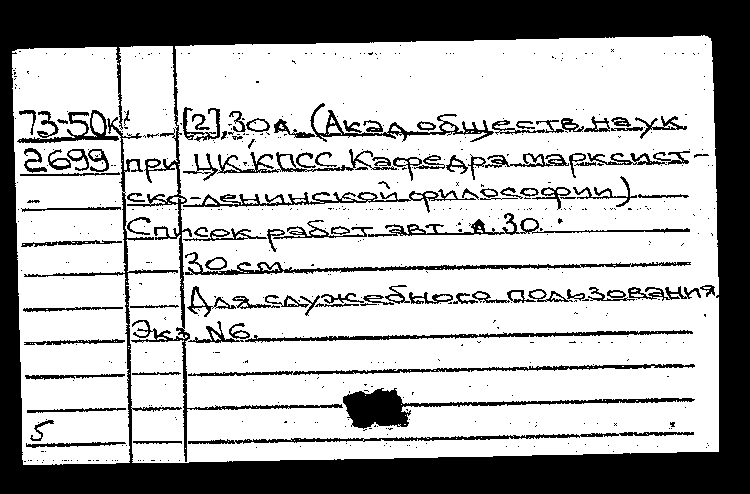 73-50к [2], 30 л. (Акад. обществ. наук
2699 при ЦК КПСС. Кафедра марксист-
- ско-ленинской философии)
Список работ авт.: л. 30.
30 см.
Для служебного пользования.
Экз. N6.
5